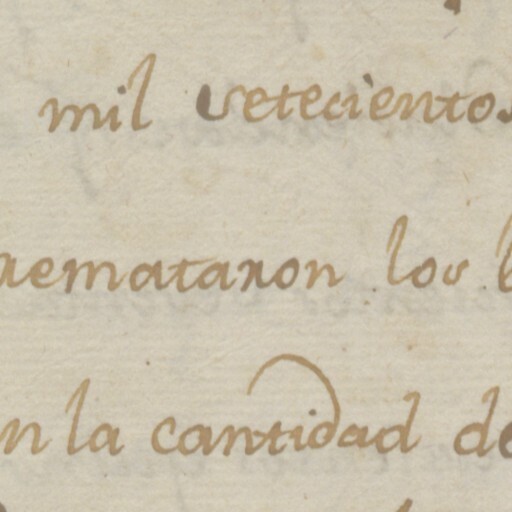 mil setecientos
remataron los b
n la cantidad de